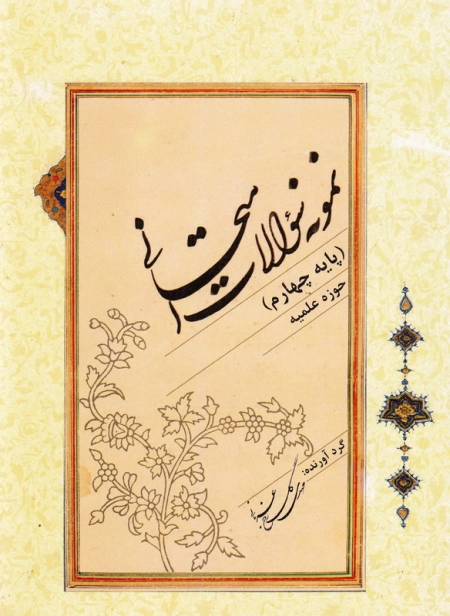 نمونه سؤالات امتحانی
(پایه چهارم)
حوزه علمیه
گرد آورنده: